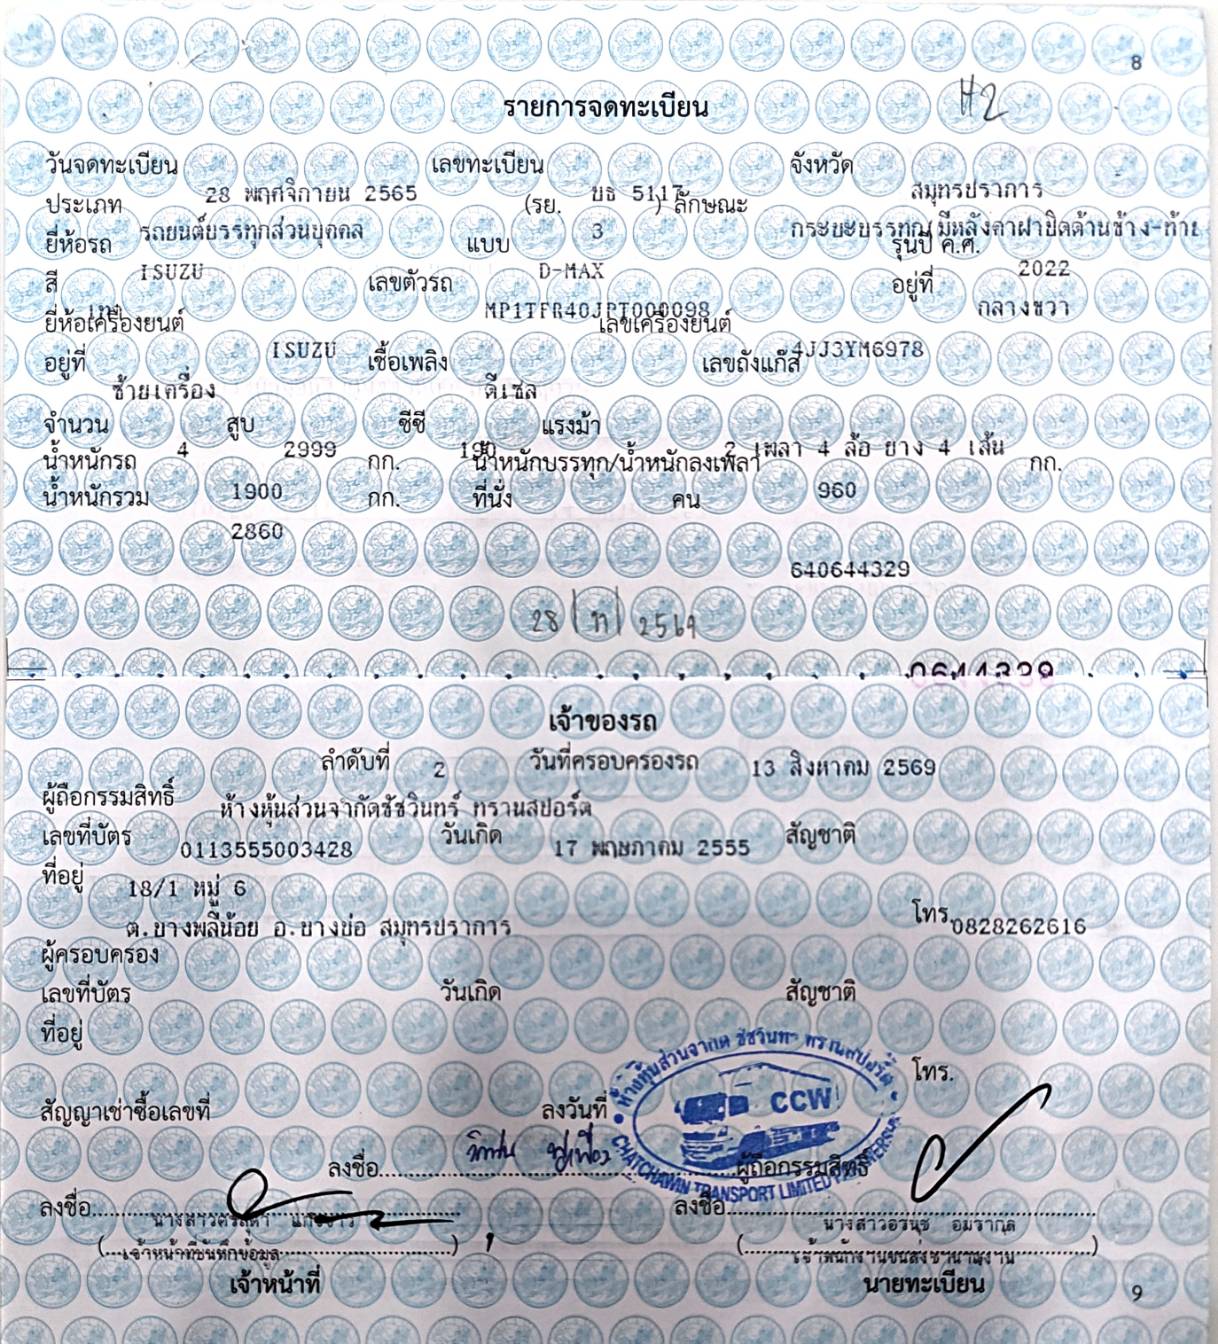 8
H2
รายการจดทะเบียน
วันจดทะเบียน 28 พฤศจิกายน 2565 เลขทะเบียน บธ 5117 จังหวัด สมุทรปราการ
ประเภท รถยนต์บรรทุกส่วนบุคคล (รย. 3 ) ลักษณะ กระบะบรรทุก/มีหลังคาฝาปิดด้านข้าง-ท้าย
ยี่ห้อรถ ISUZU แบบ D-MAX รุ่นปี ค.ศ. 2022
สี เทา เลขตัวรถ MP1TFR40JPT000098 อยู่ที่ กลางขวา
ยี่ห้อเครื่องยนต์ ISUZU เลขเครื่องยนต์ 4JJ3YM6978
อยู่ที่ ซ้ายเครื่อง เชื้อเพลิง ดีเซล เลขถังแก๊ส
จำนวน 4 สูบ 2999 ซีซี 190 แรงม้า 2 เพลา 4 ล้อ ยาง 4 เส้น
น้ำหนักรถ 1900 กก. น้ำหนักบรรทุก/น้ำหนักลงเพลา 960 กก.
น้ำหนักรวม 2860 กก. ที่นั่ง คน
640644329
28/11/2569
0644329
เจ้าของรถ
ลำดับที่ 2 วันที่ครอบครองรถ 13 สิงหาคม 2569
ผู้ถือกรรมสิทธิ์ ห้างหุ้นส่วนจำกัดชัชวินทร์ ทรานสปอร์ต
เลขที่บัตร 0113555003428 วันเกิด 17 พฤษภาคม 2555 สัญชาติ
ที่อยู่ 18/1 หมู่ 6
ต.บางพลีน้อย อ.บางบ่อ สมุทรปราการ โทร. 0828262616
ผู้ครอบครอง
เลขที่บัตร วันเกิด สัญชาติ
ที่อยู่
โทร.
ห้างหุ้นส่วนจำกัด ชัชวินทร์ ทรานสปอร์ต
CCW
CHATCHAWIN TRANSPORT LIMITED PARTNERSHIP
สัญญาเช่าซื้อเลขที่ ลงวันที่
ลงชื่อ ผู้ถือกรรมสิทธิ์
ลงชื่อ ลงชื่อ
นางสาว นางสาวอรนุช อมรากุล
(เจ้าหน้าที่บันทึกข้อมูล) (เจ้าพนักงานขนส่งชำนาญงาน)
เจ้าหน้าที่ นายทะเบียน
9